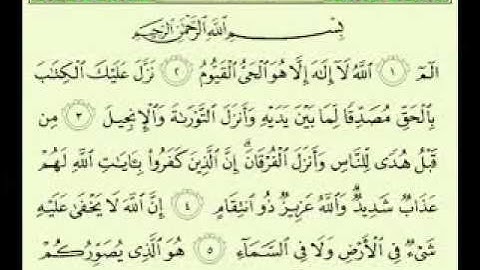 بِسْمِ ٱللَّهِ ٱلرَّحْمَٰنِ ٱلرَّحِيمِ
الٓمٓ ١ ٱللَّهُ لَآ إِلَٰهَ إِلَّا هُوَ ٱلْحَىُّ ٱلْقَيُّومُ ٢ نَزَّلَ عَلَيْكَ ٱلْكِتَٰبَ
بِٱلْحَقِّ مُصَدِّقًا لِّمَا بَيْنَ يَدَيْهِ وَأَنزَلَ ٱلتَّوْرَىٰةَ وَٱلْإِنجِيلَ ٣ مِن
قَبْلُ هُدًى لِّلنَّاسِ وَأَنزَلَ ٱلْفُرْقَانَ ۗ إِنَّ ٱلَّذِينَ كَفَرُوا۟ بِـَٔايَٰتِ ٱللَّهِ لَهُمْ
عَذَابٌ شَدِيدٌ ۗ وَٱللَّهُ عَزِيزٌ ذُو ٱنتِقَامٍ ٤ إِنَّ ٱللَّهَ لَا يَخْفَىٰ عَلَيْهِ
شَىْءٌ فِى ٱلْأَرْضِ وَلَا فِى ٱلسَّمَآءِ ٥ هُوَ ٱلَّذِى يُصَوِّرُكُمْ